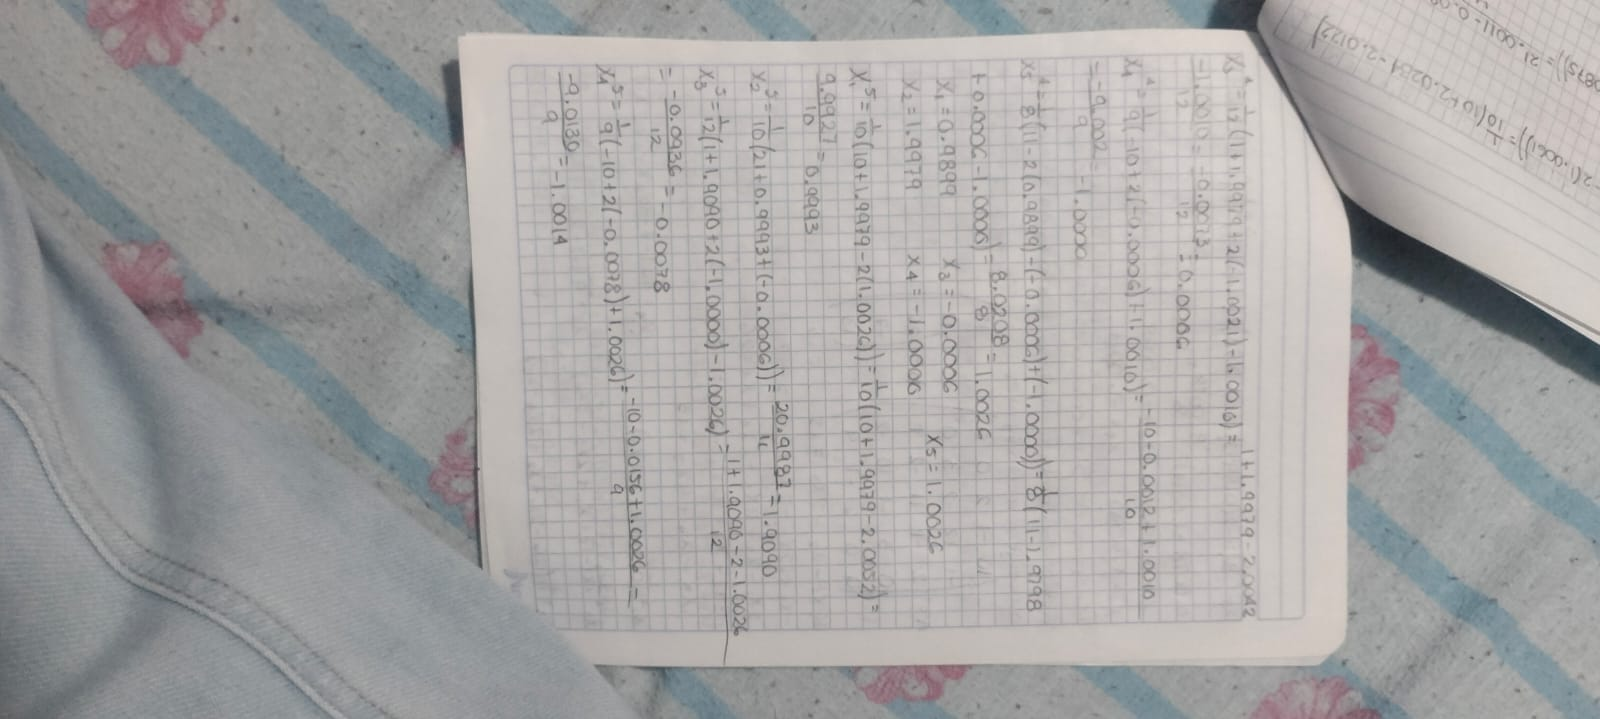 x₃⁴ = 1/12 (1+1.9979+2(-1.0021)-1.0010) = 1+1.9979-2.0042
-1.0010/12 = -0.0073/12 = 0.0006
x₄⁴ = 1/9 (-10+2(-0.0006)+1.0010) = -10-0.0012+1.0010/10
= -9.002/9 = -1.0000
x₅⁴ = 1/8 (11-2(0.9899)-(-0.0006)+(-1.0000)) = 1/8 (11-1.9798
+0.0006-1.0006) = 8.0208/8 = 1.0026
x₁ = 0.9899 x₃ = -0.0006 x₅ = 1.0026
x₂ = 1.9979 x₄ = -1.0006
x₁⁵ = 1/10 (10+1.9979-2(1.0026)) = 1/10 (10+1.9979-2.0052) =
9.9927/10 = 0.9993
x₂⁵ = 1/10 (21+0.9993+(-0.0006)) = 20.9987/11 = 1.9090
x₃⁵ = 1/12 (1+1.9090+2(-1.0000)-1.0026) = 1+1.9090-2-1.0026/12
= -0.0936/12 = -0.0078
x₄⁵ = 1/9 (-10+2(-0.0078)+1.0026) = -10-0.0156+1.0026/9 =
-9.0130/9 = -1.0014
-2(1.0061)) = 1/10 (10+2.0234-2.0122)
= 21.0011-0.0